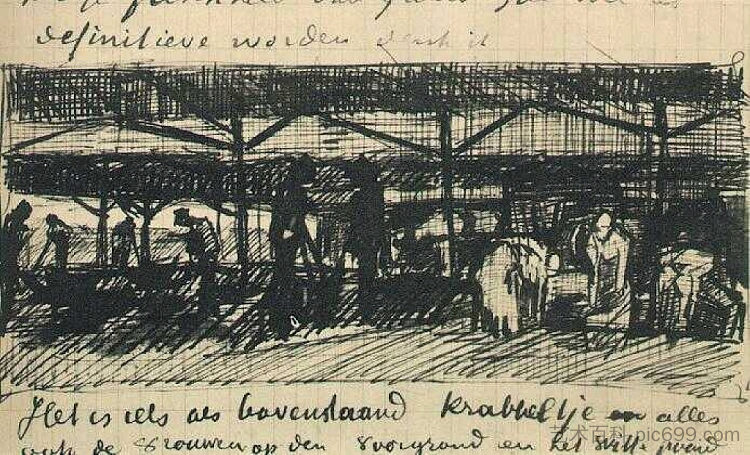 definitieve worden denk ik
Het is iets als bovenstaand krabbeltje en alles
ook de vrouwen op den voorgrond en het witte paard
艺术百科 pic699.com